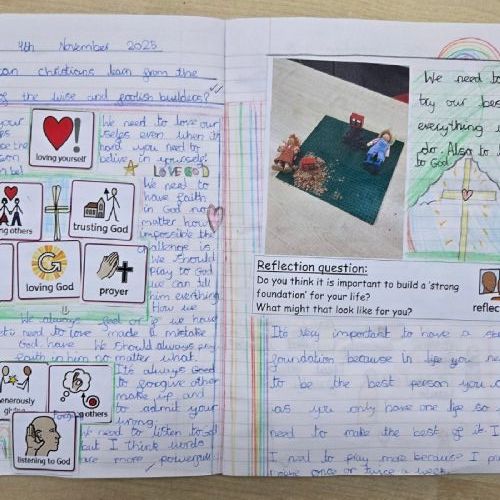 4th November 2025
can christians learn from the
of the wise and foolish builders?
your
We need to love our
selves even when it
hard you need to
believe in yourself.
loving yourself
LOVE GOD
We need to
have faith
in God no
matter how
impossible the
challenge is
We should
pray to God
we can tell
him everything
How we
ng others
trusting God
loving God
prayer
We always
God
if we have
need to love
made a mistake
God have
We should always
faith in him no matter what.
Its always Good
to forgive other
make up and
to admit your
wrong.
enerously
giving
ng others
We need to listen to God
but I think words
are more powerful.
listening to God
We need to
try our bes
everything
do. Also to
to God
Reflection question:
Do you think it is important to build a 'strong
foundation' for your life?
What might that look like for you?
reflec
Its very important to have a st
foundation because in life you ne
to be the best person you
as you only have one life so
need to make the best of it. I
I need to pray more because I
once or twice a week.